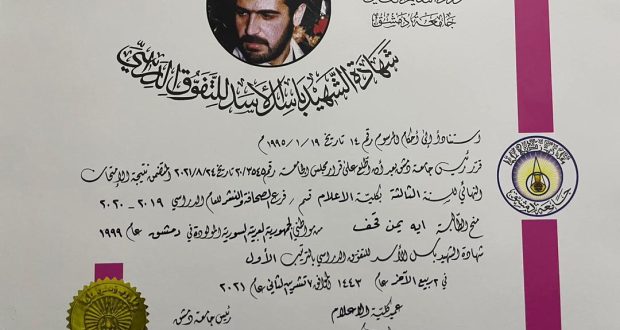 جامعة دمشق
شهادة الشهيد باسل الأسد للتفوق الدراسي
استناداً إلى أحكام المرسوم رقم ١٤ تاريخ ١٩ / ١ / ١٩٩٥ م
قرر رئيس جامعة دمشق بعد أن اطلع على قرار مجلس الجامعة رقم تاريخ ٢٤ / ٨ / ٢٠٢١ المتضمن نتيجة الإمتحان
النهائي للسنة الثالثة بكلية الاعلام قسم / فرع الصحافة والنشر للعام الدراسي ٢٠١٩ - ٢٠٢٠
منح الطالبة ايه يمن قحف من مواطني الجمهورية العربية السورية المولودة في دمشق عام ١٩٩٩
شهادة الشهيد باسل الأسد للتفوق الدراسي بالترتيب الأول
في ٢ ربيع الآخر عام ١٤٤٣ الموافق ٧ تشرين الثاني عام ٢٠٢١
عميد كلية الاعلام
رئيس جامعة دمشق
جامعة دمشق